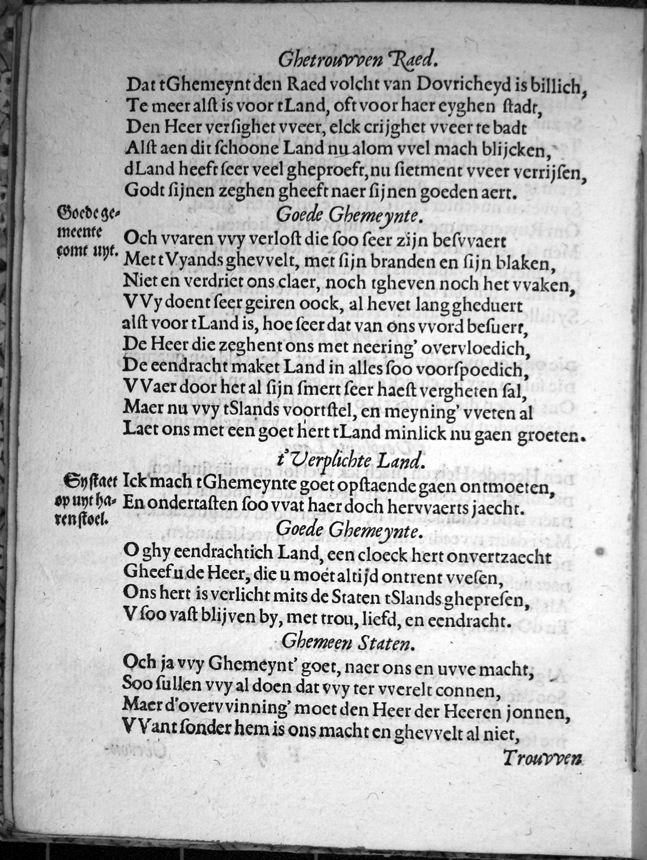 Ghetrouvven Raed.
Dat tGhemeynt den Raed volcht van Dovricheyd is billich,
Te meer alſt is voor tLand, oft voor haer eyghen ſtadt,
Den Heer verſighet vveer, elck crijghet vveer te badt
Alſt aen dit ſchoone Land nu alom vvel mach blijcken,
dLand heeft ſeer veel gheproeft, nu ſietment vveer verrijſen,
Godt ſijnen zeghen gheeft naer ſijnen goeden aert.
Goede Ghemeynte.
Goede ge-
meente
comt uyt.
Och vvaren vvy verloſt die ſoo ſeer zijn beſvvaert
Met tVyands ghevvelt, met ſijn branden en ſijn blaken,
Niet en verdriet ons claer, noch tgheven noch het vvaken,
VVy doent ſeer geiren oock, al hevet lang gheduert
alſt voor tLand is, hoe ſeer dat van ons vvord beſuert,
De Heer die zeghent ons met neering' overvloedich,
De eendracht maket Land in alles ſoo voorſpoedich,
VVaer door het al ſijn ſmert ſeer haeſt vergheten ſal,
Maer nu vvy tSlands voortſtel, en meyning' vveten al
Laet ons met een goet hert tLand minlick nu gaen groeten.
t'Verplichte Land.
Sy ſtaet
op uyt ha-
ren ſtoel.
Ick mach tGhemeynte goet opſtaende gaen ontmoeten,
En ondertaſten ſoo vvat haer doch hervvaerts jaecht.
Goede Ghemeynte.
O ghy eendrachtich Land, een cloeck hert onvertzaecht
Gheef u de Heer, die u moet altijd ontrent vveſen,
Ons hert is verlicht mits de Staten tSlands ghepreſen,
V ſoo vaſt blijven by, met trou, liefd, en eendracht.
Ghemeen Staten.
Och ja vvy Ghemeynt' goet, naer ons en uvve macht,
Soo ſullen vvy al doen dat vvy ter vverelt connen,
Maer d'overvvinning' moet den Heer der Heeren jonnen,
VVant ſonder hem is ons macht en ghevvelt al niet,
Trouvven